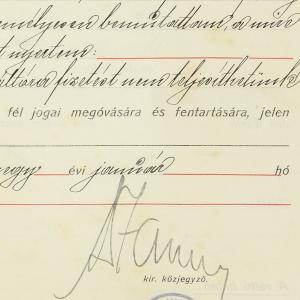 személyesen bemutattam, a mire
t nyertem:
fizetést nem teljesíthetünk
fél jogai megóvására és fentartására, jelen
negy évi január hó
kir. közjegyző.